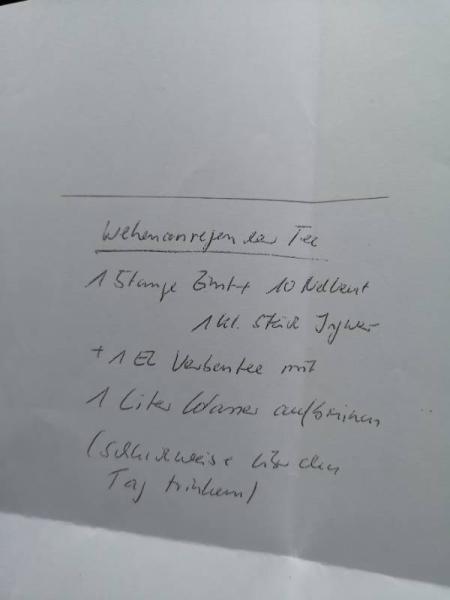 Wehenanregender Tee
1 Stange Zimt + 10 Nelken +
1 kl. Stück Ingwer
+ 1 EL Verbentee mit
1 Liter Wasser aufbrühen
(schluckweise über den
Tag trinken)